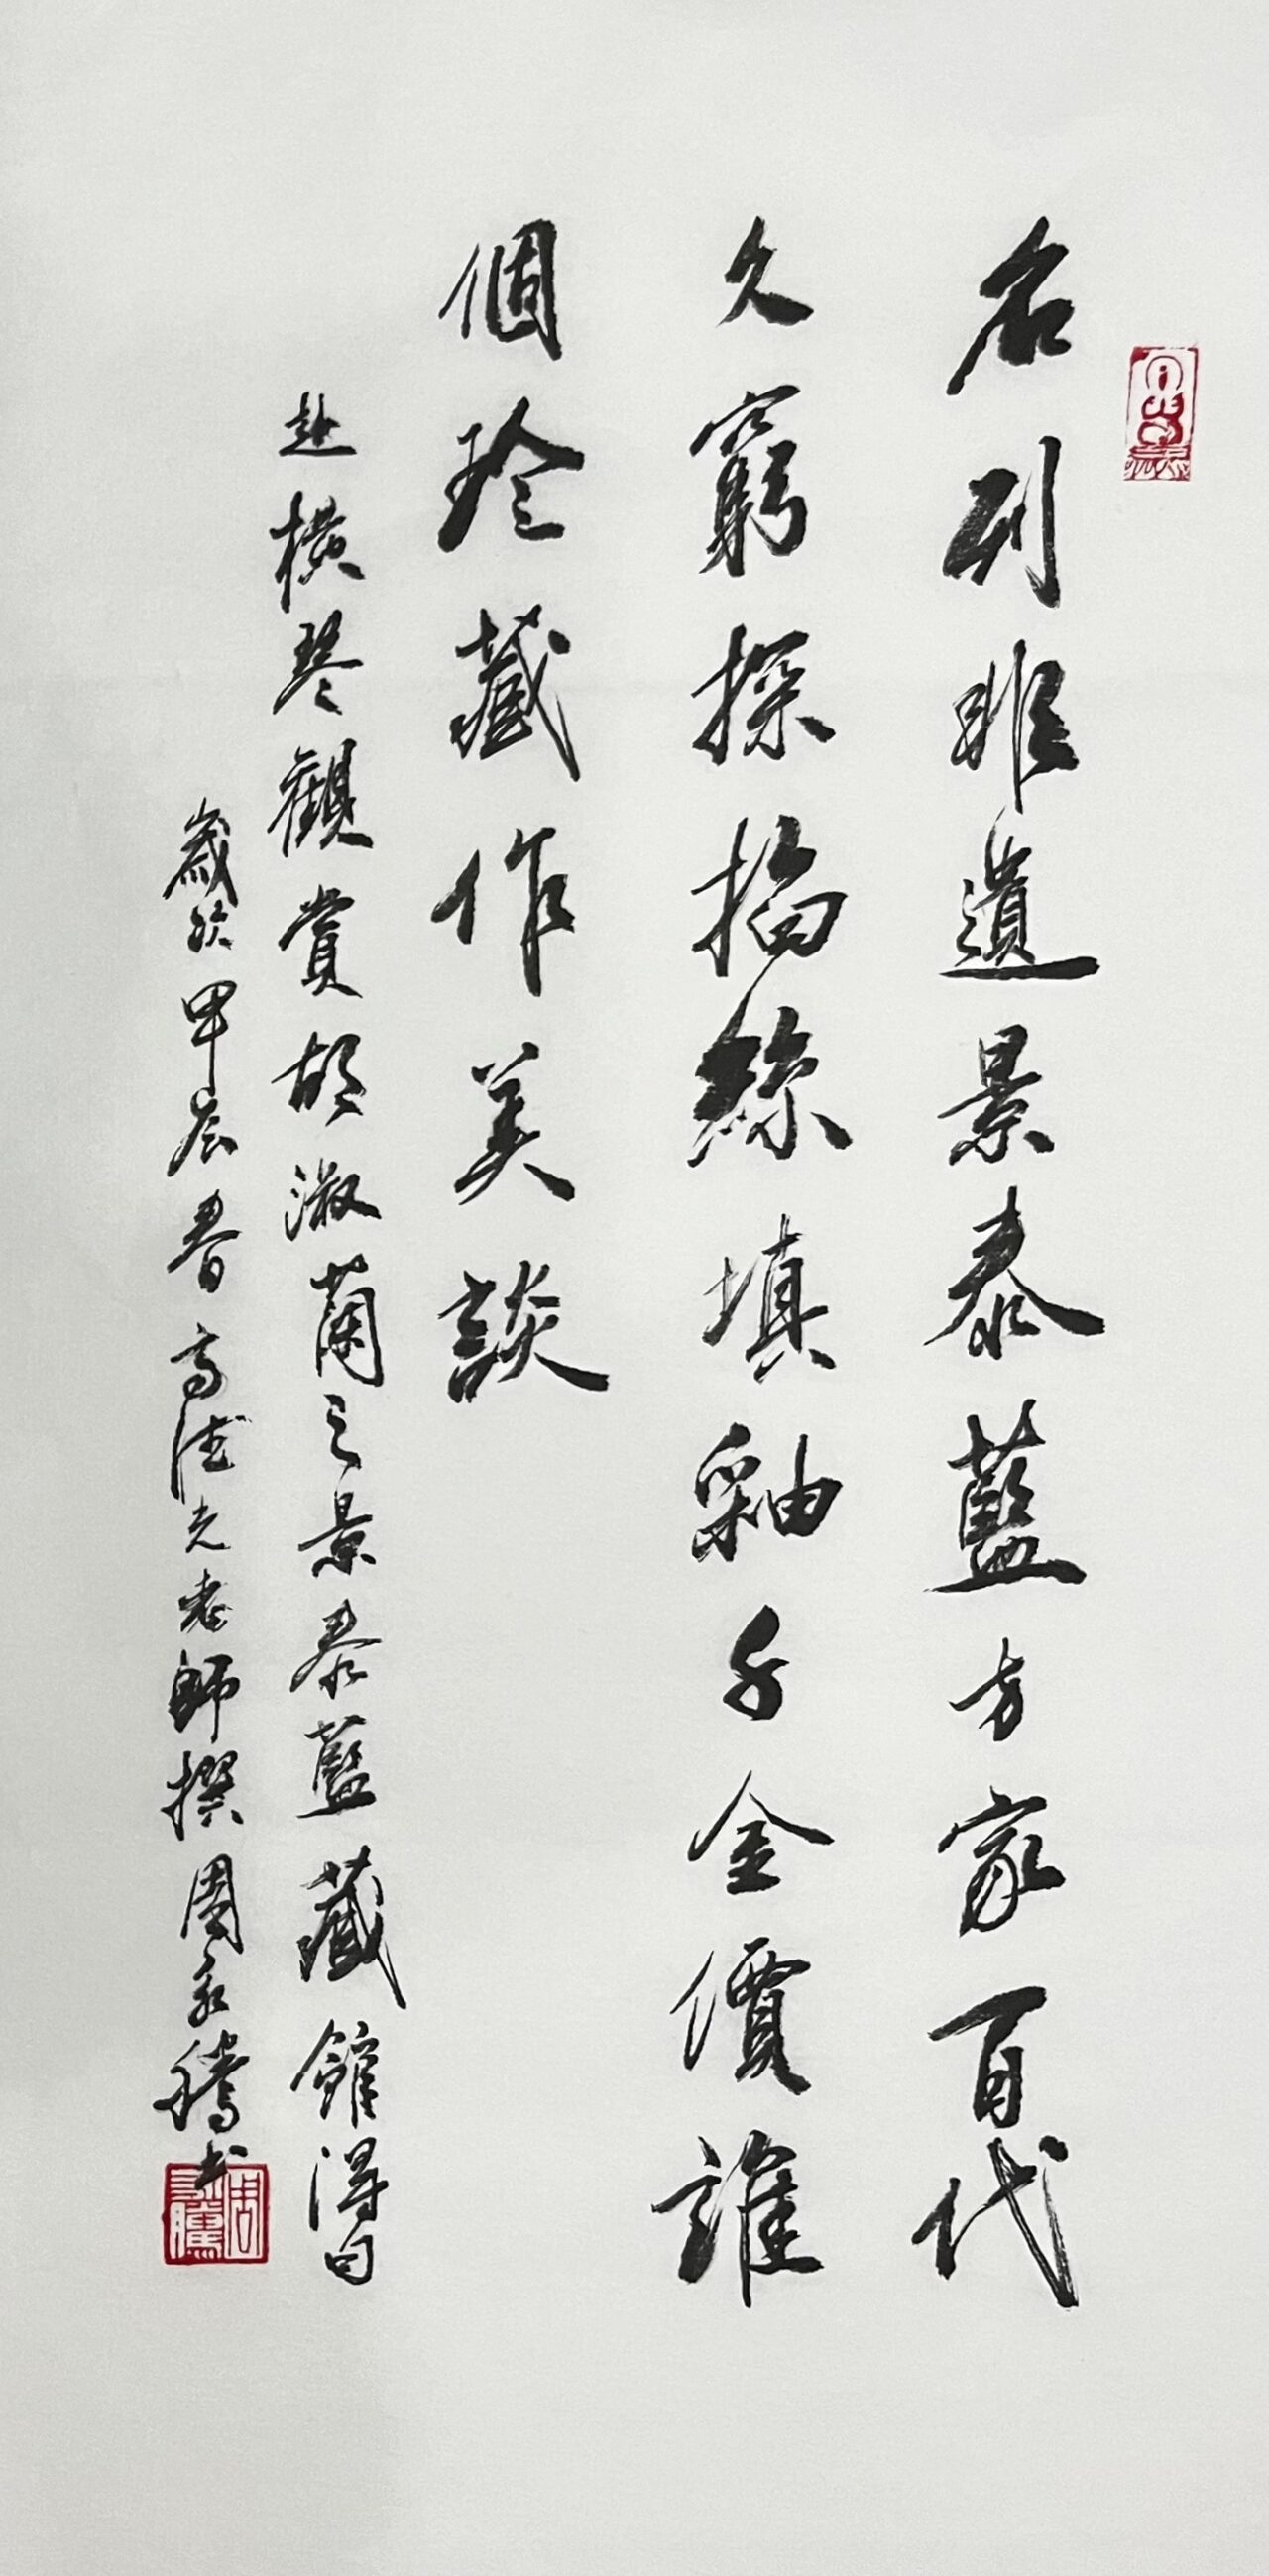 名列非遺景泰藍方家百代
久窮探掐絲填釉千金價誰
個珍藏作美談
赴橫琴觀賞胡淑蘭之景泰藍藏館得句
歲次甲辰春高德光老師撰周永騰書